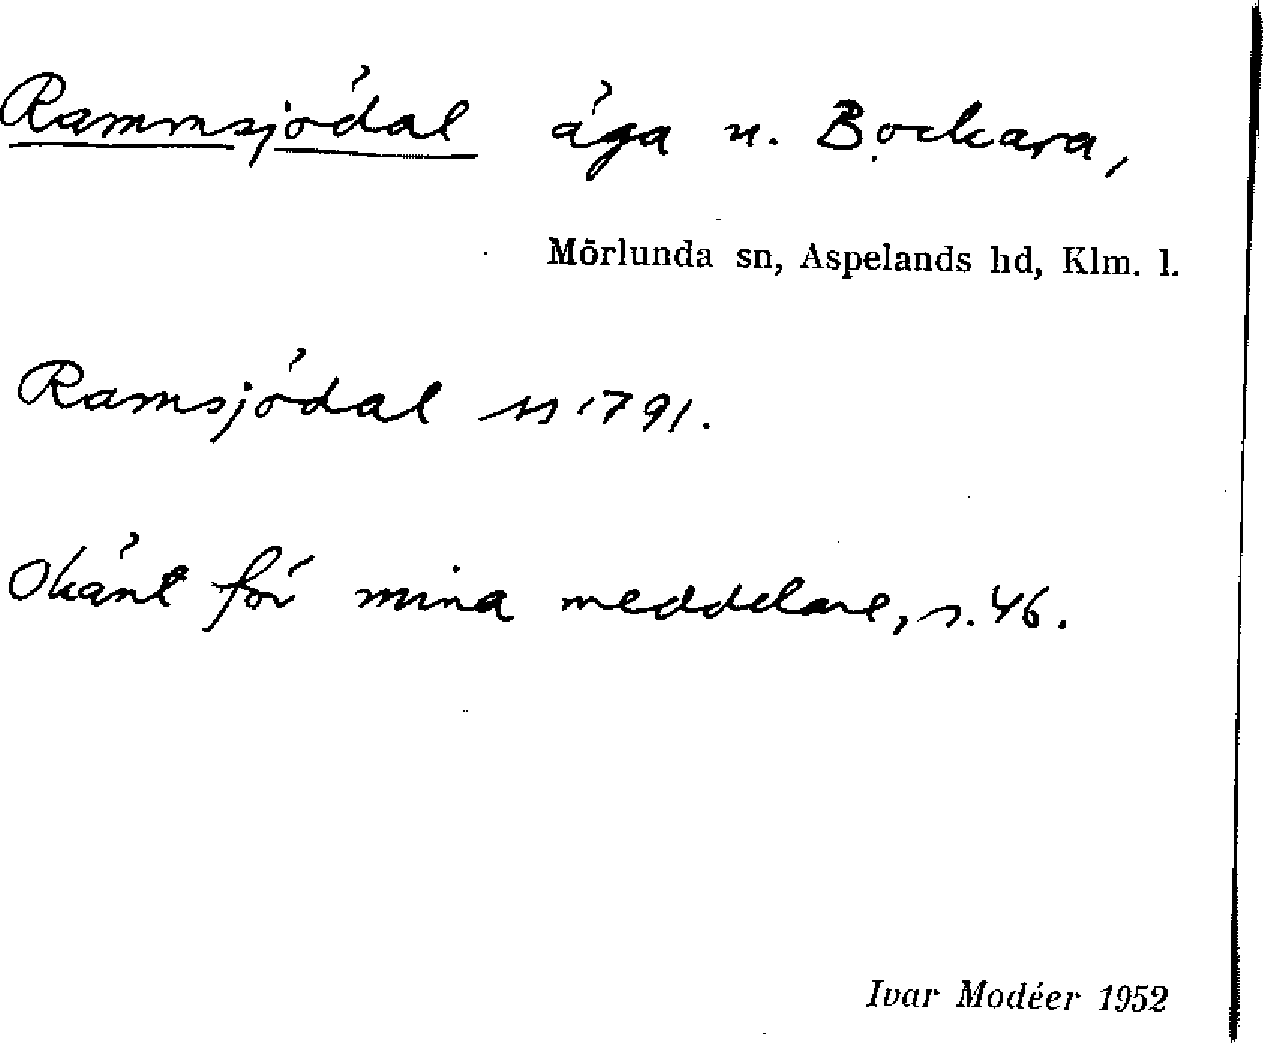 Rammsjödal äga u. Bockara,
Mörlunda sn, Aspelands hd, Klm. l.
Ramsjödal 1791.
Okänt för mina meddelare, s. 46.
Ivar Modéer 1952